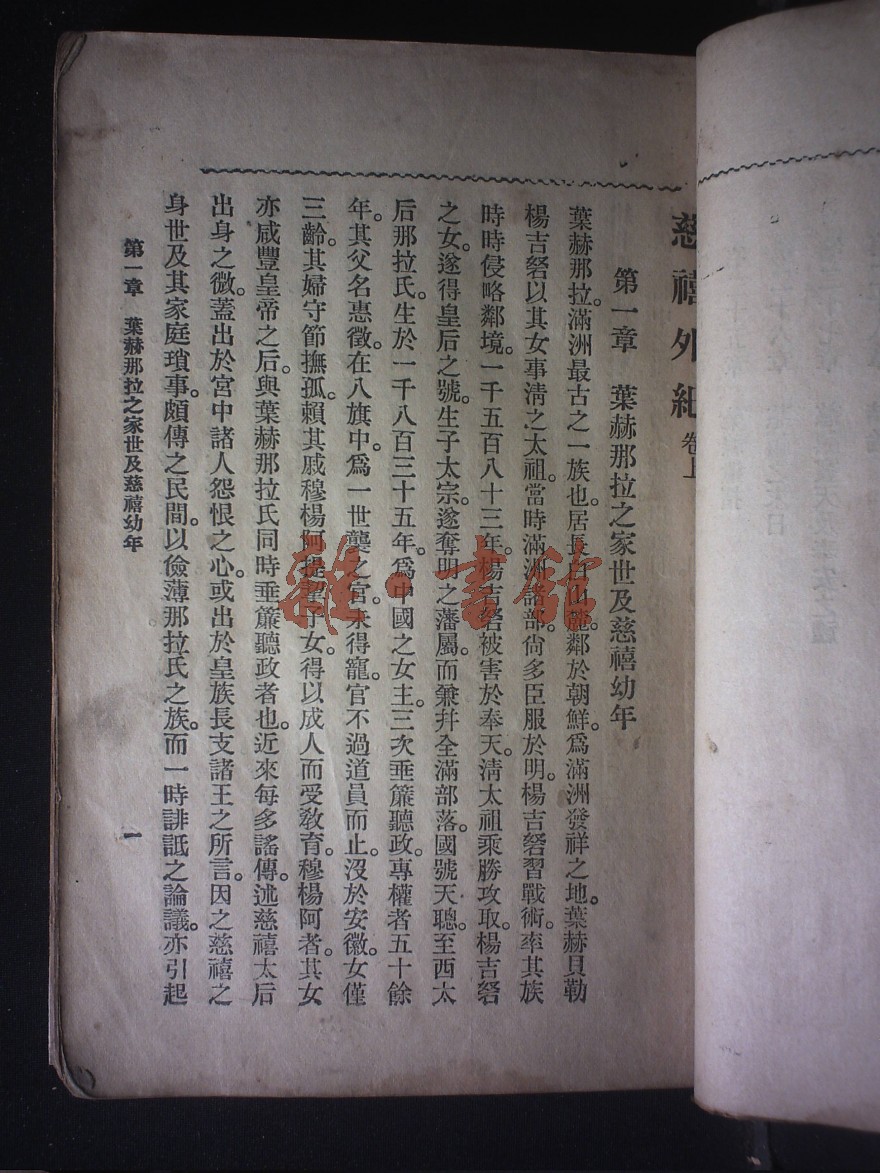 慈禧外紀 卷上
第一章 葉赫那拉之家世及慈禧幼年
葉赫那拉。滿洲最古之一族也。居長白山麓。鄰於朝鮮。爲滿洲發祥之地。葉赫貝勒
楊吉砮以其女事淸之太祖。當時滿洲諸部。尙多臣服於明。楊吉砮習戰術。率其族
時時侵略鄰境。一千五百八十三年。楊吉砮被害於奉天。淸太祖乘勝攻取。楊吉砮
之女。遂得皇后之號。生子太宗。遂奪明之藩屬。而兼幷全滿部落。國號天聰。至西太
后那拉氏。生於一千八百三十五年。爲中國之女主。三次垂簾聽政。專權者五十餘
年。其父名惠徵。在八旗中。爲一世襲之官。未得寵。官不過道員而止。沒於安徽。女僅
三齡。其婦守節撫孤。賴其戚穆楊阿提挈子女。得以成人而受敎育。穆楊阿者。其女
亦咸豐皇帝之后。與葉赫那拉氏同時垂簾聽政者也。近來每多謠傳。述慈禧太后
出身之微。蓋出於宮中諸人怨恨之心。或出於皇族長支諸王之所言。因之慈禧之
身世及其家庭瑣事。頗傳之民間。以儉薄那拉氏之族。而一時誹詆之論議。亦引起
第一章 葉赫那拉之家世及慈禧幼年
一
雜·書館